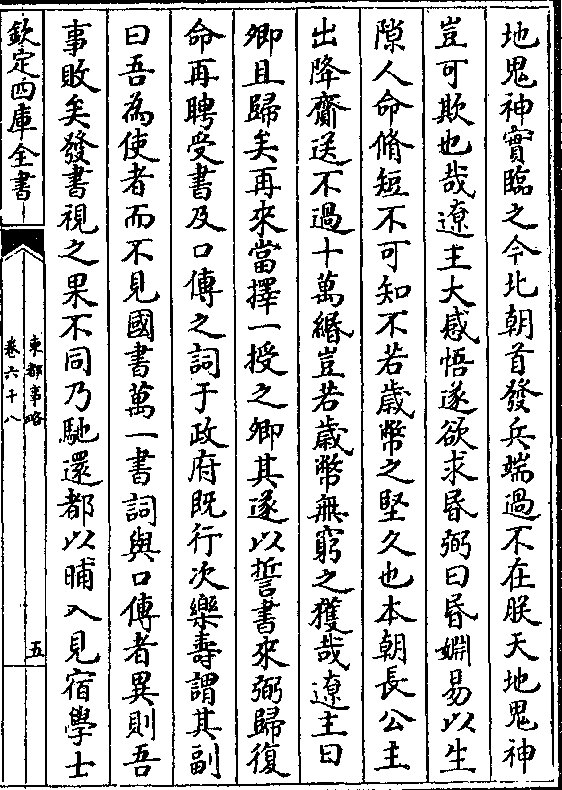 地鬼神實臨之今北朝首發兵端過不在朕天地鬼神
豈可欺也哉遼主大感悟遂欲求昏弼曰昏姻易以生
隙人命脩短不可知不若歲幣之堅久也本朝長公主
出降齎送不過十萬緡豈若歲幣無窮之獲哉遼主曰
卿且歸矣再來當擇一授之卿其遂以誓書來弼歸復
命再聘受書及口傳之詞于政府既行次樂壽謂其副
曰吾為使者而不見國書萬一書詞與口傳者異則吾
事敗矣發書視之果不同乃馳還都以晡入見宿學士
欽定四庫全書
東都事略
卷六十八
五